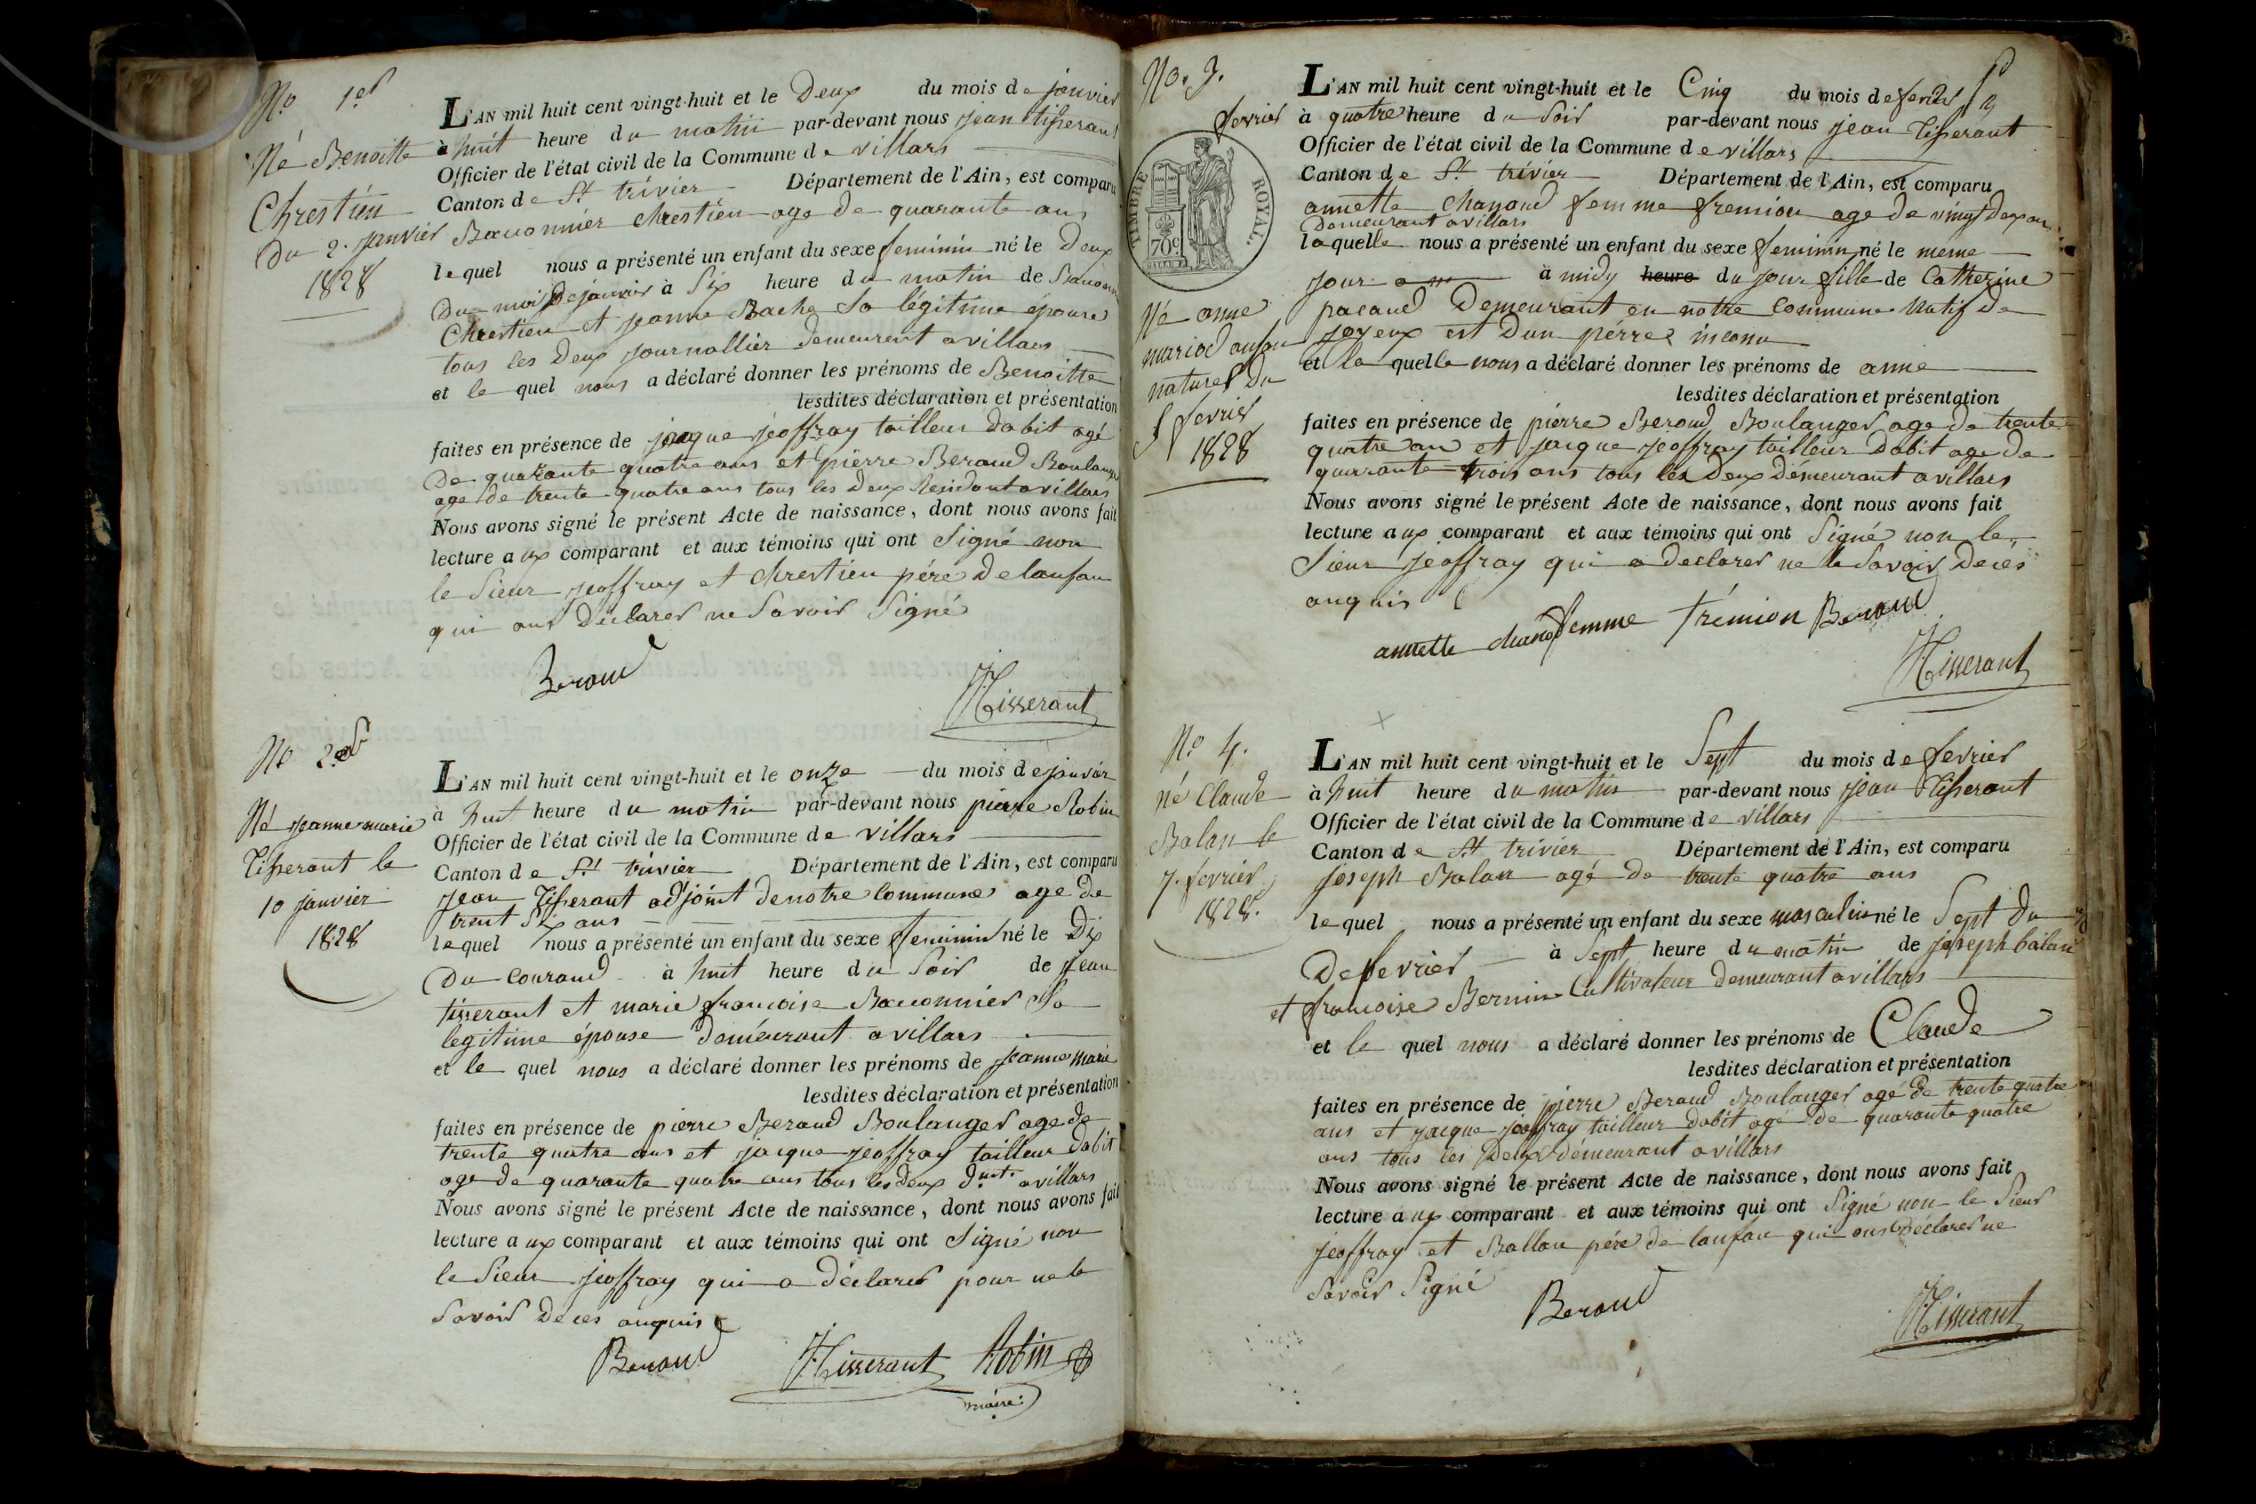 No 1er
Né Benoitte
Chrestien
Du 2. janvier
1828
L'AN mil huit cent vingt-huit et le Deux du mois de janvier
à huit heure du matin par-devant nous jean tisserant
Officier de l'état civil de la Commune de villars
Canton de St trivier Département de l'Ain, est comparu
chrestien age de quarante ans
lequel nous a présenté un enfant du sexe feminin né le Deux
Du mois De janvier à Six heure du matin de
Chrestien et jeanne Bache Sa légitime épouse
tous les Deux journallier demeurent a villars
et le quel nous a déclaré donner les prénoms de Benoitte
lesdites déclaration et présentation
faites en présence de jacque jeoffray tailleur Dabit agé
De quarante quatre ans et pierre Beraud Boulanger
age de trente quatre ans tous les Deux Residant a villars
Nous avons signé le présent Acte de naissance, dont nous avons fait
lecture aux comparant et aux témoins qui ont Signé non
le Sieur jeoffray et chrestien pére De lanfan
qui ont Déclarer ne Savoir Signé
Beraud
JTisserant
No 2
Né jeanne marie
Tisserant le
10 janvier
1828
L'AN mil huit cent vingt-huit et le onze du mois de janvier
à huit heure du matin par-devant nous pierre Robin
Officier de l'état civil de la Commune de villars
Canton de St trivier Département de l'Ain, est comparu
jean Tisserant adjoint de notre commune age de
trent Six ans
lequel nous a présenté un enfant du sexe feminin né le Dix
Du courand à huit heure du Soir de jean
tisserant et marie francoise Baconnier Sa
legitime épouse demeurant a villars
et le quel nous a déclaré donner les prénoms de jeanne marie
lesdites déclaration et présentation
faites en présence de pierre Beraud Boulanger age de
trente quatre ans et jacque jeoffray tailleur dabit
age de quarante quatre ans tous les deux dmt a villars
Nous avons signé le présent Acte de naissance, dont nous avons fait
lecture aux comparant et aux témoins qui ont Signé non
le Sieur jeoffray qui a déclarer pour ne le
Savoir De ces anquis
Beraud JTisserant Robin
maire
No. 3.
fevrier
TIMBRE ROYAL
70c
Né anne
enfan
naturel Du
5 fevrier
1828
L'AN mil huit cent vingt-huit et le Cinq du mois de fevrier
à quatre heure du Soir par-devant nous jean Tisserant
Officier de l'état civil de la Commune de villars
Canton de St trivier Département de l'Ain, est comparu
annette chanaud femme fremion age de vingt Dex an
Demeurant a villars
laquelle nous a présenté un enfant du sexe feminin né le meme
jour à midy heure du jour fille de Catherine
pacaud Demeurant en notre Commune Natif De
joyeux est Dun pérre inconu
et la quelle nous a déclaré donner les prénoms de anne
lesdites déclaration et présentation
faites en présence de pierre Beraud Boulanger age de trente
quatre an et jacque jeoffray tailleur Dabit age De
quarrante trois ans tous les Deux Démeurant a villars
Nous avons signé le présent Acte de naissance, dont nous avons fait
lecture aux comparant et aux témoins qui ont Signé non le
Sieur jeoffray qui a Declarer ne le Savoir De ces
anquis
annette chano femme frémion Beraud
JTisserant
No 4.
né Claude
Balan le
7. fevrier
1828.
L'AN mil huit cent vingt-huit et le Sept du mois de fevrier
à huit heure du matin par-devant nous jean Tisserant
Officier de l'état civil de la Commune de villars
Canton de St trivier Département de l'Ain, est comparu
joseph Balan agé de trente quatre ans
lequel nous a présenté un enfant du sexe masculin né le Sept du
De fevrier à Sept heure du matin de joseph balan
et francoise Bernin Cultivateur demeurant a villars
et le quel nous a déclaré donner les prénoms de Claude
lesdites déclaration et présentation
faites en présence de pierre Beraud Boulanger agé de trente quatre
ans et jacque jeoffray tailleur dabit agé de quarante quatre
ans tous les Deux démeurant a villars
Nous avons signé le présent Acte de naissance, dont nous avons fait
lecture aux comparant et aux témoins qui ont Signé non le Sieur
jeoffray et Ballan pére de lanfan qui ont déclarer ne
Savoir Signé
Beraud
JTisserant